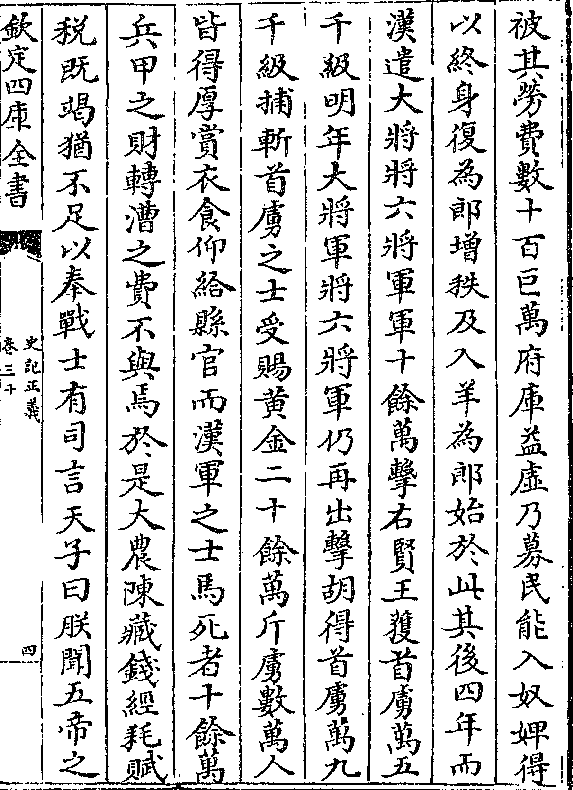 被其勞費數十百巨萬府庫益虛乃募民能入奴婢得
以終身復為郎增秩及入羊為郎始於此其後四年而
漢遣大將將六將軍軍十餘萬擊右賢王獲首虜萬五
千級明年大將軍將六將軍仍再出擊胡得首虜萬九
千級捕斬首虜之士受賜黃金二十餘萬斤虜數萬人
皆得厚賞衣食仰給縣官而漢軍之士馬死者十餘萬
兵甲之財轉漕之費不與焉於是大農陳藏錢經耗賦
稅既竭猶不足以奉戰士有司言天子曰朕聞五帝之
欽定四庫全書
史記正義
卷三十
四